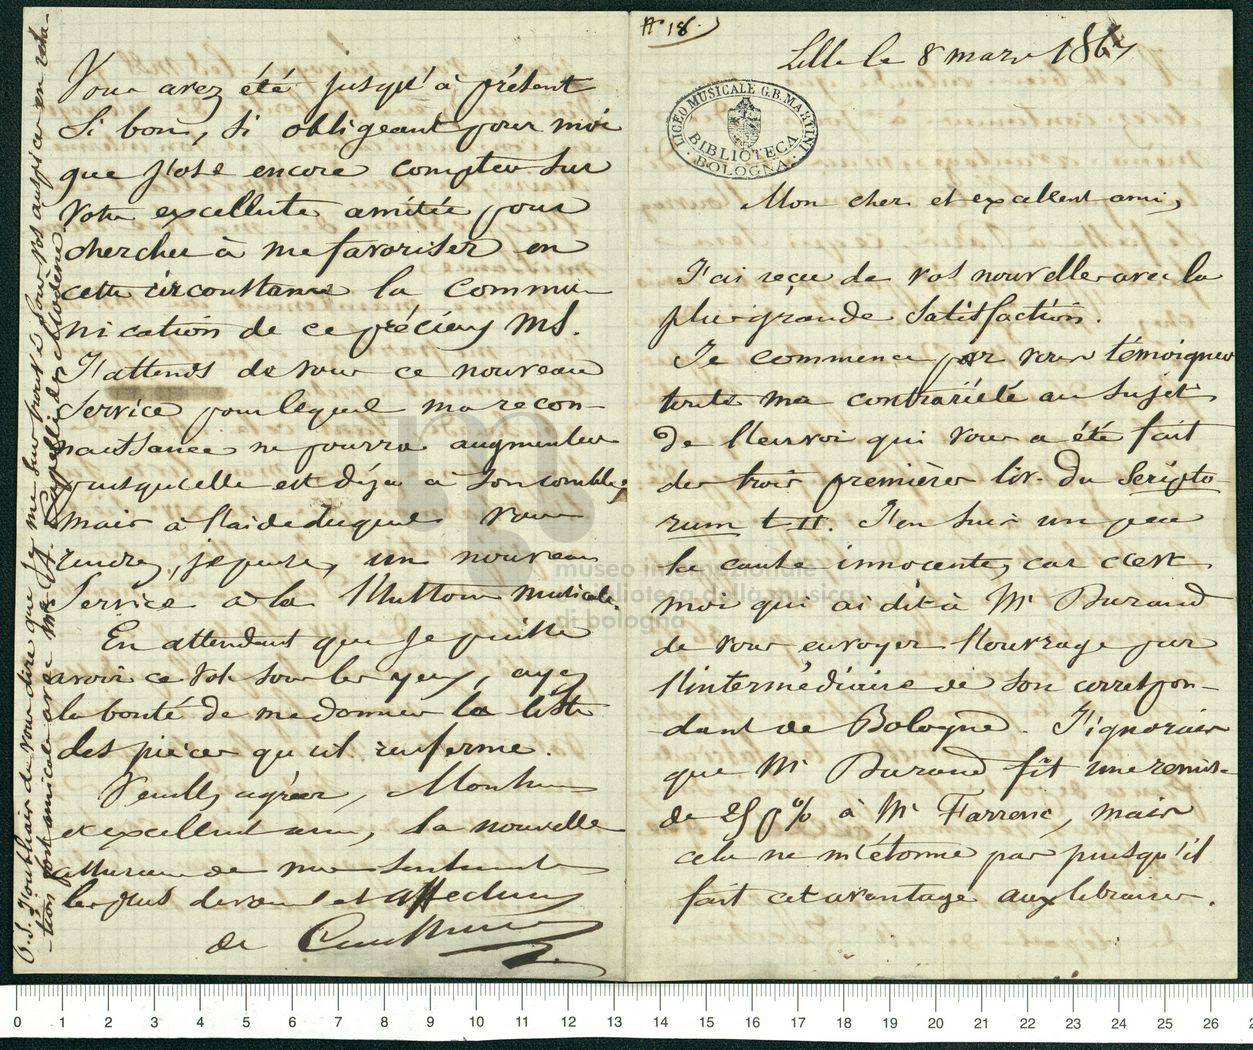 N° 18.
Lille le 8 mars 1867
LICEO MUSICALE G.B. MARTINI
BIBLIOTECA
BOLOGNA
Mon cher et excellent ami,
J'ai reçu de vos nouvelles avec la
plus grande satisfaction.
Je commence par vous témoigner
toute ma contrariété au sujet
de l'envoi qui vous a été fait
des trois premières liv. du Scripto-
rum t. II. J'en suis un peu
la cause innocente, car c'est
moi qui ai dit à Mr Durand
de vous envoyer l'ouvrage par
l'intermédiaire de son correspon-
dant de Bologne. J'ignorais
que Mr Durand fit une remise
de 25 p% à Mr Farrenc, mais
cela ne m'étonne pas puisqu'il
fait cet avantage aux libraires.
Vous avez été jusqu'à présent
si bon, si obligeant pour moi
que j'ose encore compter sur
votre excellente amitié pour
chercher à me favoriser en
cette circonstance la commu-
nication de ce précieux MS.
J'attends de vous ce nouveau
service pour lequel ma recon-
naissance ne pourra augmenter
puisqu'elle est déjà à son comble,
mais à l'aide duquel vous
rendrez, j'espère, un nouveau
service à la l'histoire musicale.
En attendant que je puisse
avoir ce vol. sous les yeux, ayez
la bonté de me donner la liste
des pièces qu'il renferme.
Veuillez agréer, Monsieur
et excellent ami, la nouvelle
assurance de mes sentiments
les plus dévoués et affectueux
de Coussemaker
P.S. J'oubliais de vous dire que je me suis trouvé sous vos auspices en rela-
tion fort amicale avec Mr A. Cappelli de Modène.
museo internazionale
biblioteca della musica
di bologna
0 1 2 3 4 5 6 7 8 9 10 11 12 13 14 15 16 17 18 19 20 21 22 23 24 25 26